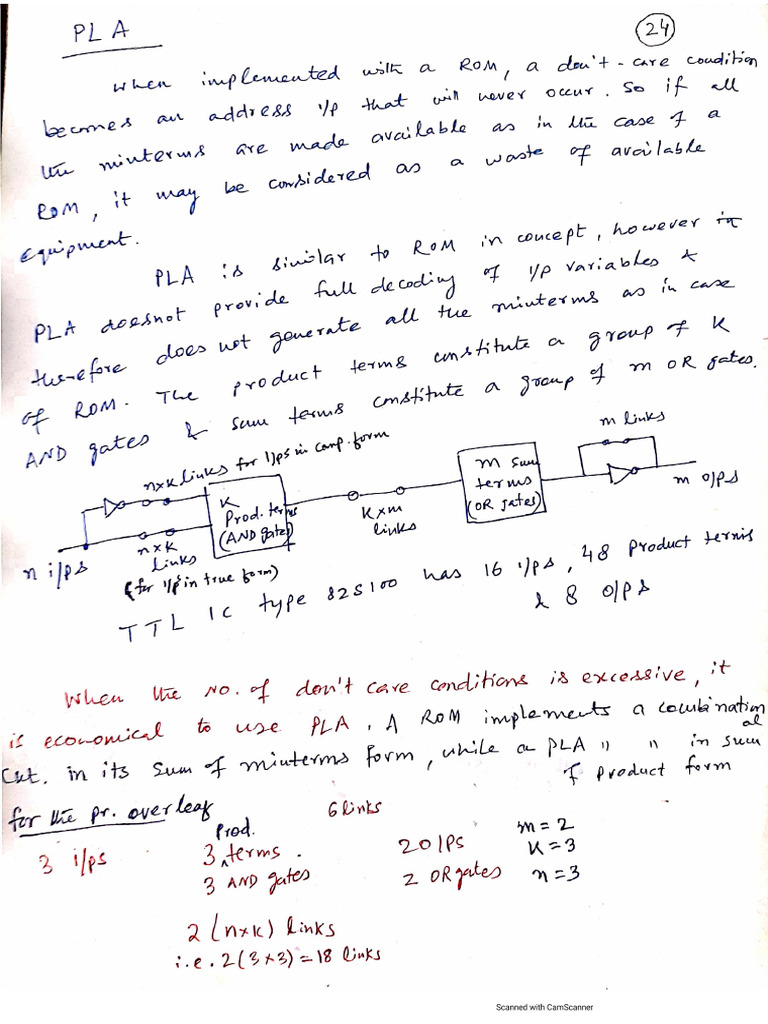 PLA
24
When implemented with a ROM, a don't-care condition
becomes an address i/p that will never occur. So if all
the minterms are made available as in the case of a
ROM, it may be considered as a waste of available
equipment.
PLA is similar to ROM in concept, however in
PLA doesnot provide full decoding of i/p variables &
therefore does not generate all the minterms as in case
of ROM. The product terms constitute a group of K
AND gates & sum terms constitute a group of m OR gates.
m links
nxk links for i/ps in comp. form
K
Prod. terms
(AND gates)
m sum
terms
(OR gates)
m o/ps
Kxm
links
nxk
links
n i/ps
(for i/ps in true form)
TTL IC type 82S100 has 16 i/ps, 48 product terms
& 8 o/ps
When the No. of don't care conditions is excessive, it
is economical to use PLA. A ROM implements a combination
al
Ckt. in its sum of minterms form, while a PLA " " in sum
of product form
for the pr. overleaf
6 links
Prod.
3 i/ps 3 terms. 2 O/Ps m=2
3 AND gates 2 OR gates K=3
n=3
2 (nxk) links
i.e. 2(3x3)=18 links
Scanned with CamScanner